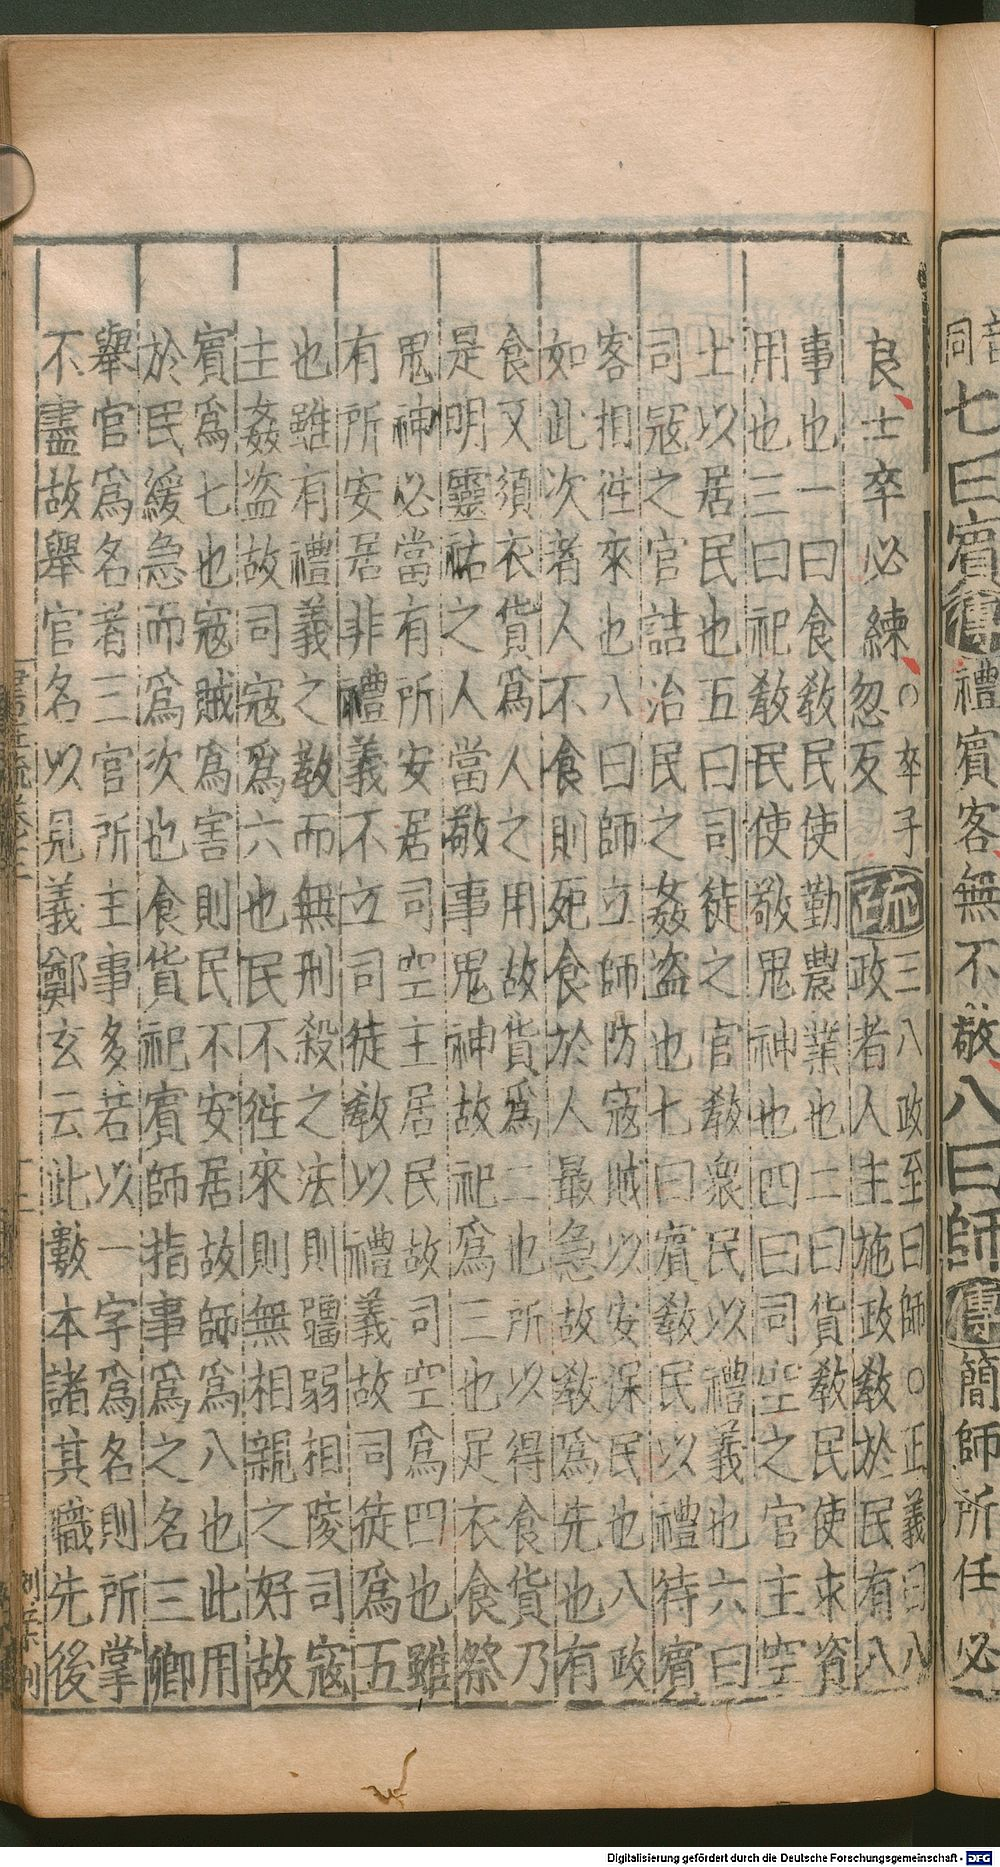 同
七曰賓傳禮賓客無不敬八曰師傳簡師所任必
良士卒必練○卒子
忽反
疏三八政至曰師○正義曰八
政者人主施政教於民有八
事也一曰食教民使勤農業也二曰貨教民使求資
用也三曰祀教民使敬鬼神也四曰司空之官主空
土以居民也五曰司徒之官教衆民以禮義也六曰
司寇之官詰治民之姦盜也七曰賓教民以禮待賓
客相徃來也八曰師立師防寇賊以安保民也八政
如此次者人不食則死食於人最急故教爲先也有
食又須衣貨爲人之用故貨爲二也所以得食貨乃
是明靈祐之人當敬事鬼神故祀爲三也足衣食祭
鬼神必當有所安居司空主居民故司空爲四也雖
有所安居非禮義不立司徒教以禮義故司徒爲五
也雖有禮義之教而無刑殺之法則疆弱相陵司寇
主姦盜故司寇爲六也民不徃來則無相親之好故
賓爲七也寇賊爲害則民不安居故師爲八也此用
於民緩急而爲次也食貨祀賓師指事爲之名三卿
舉官爲名者三官所主事多若以一字爲名則所掌
不盡故舉官名以見義鄭玄云此數本諸其職先後
Digitalisierung gefördert durch die Deutsche Forschungsgemeinschaft - DFG